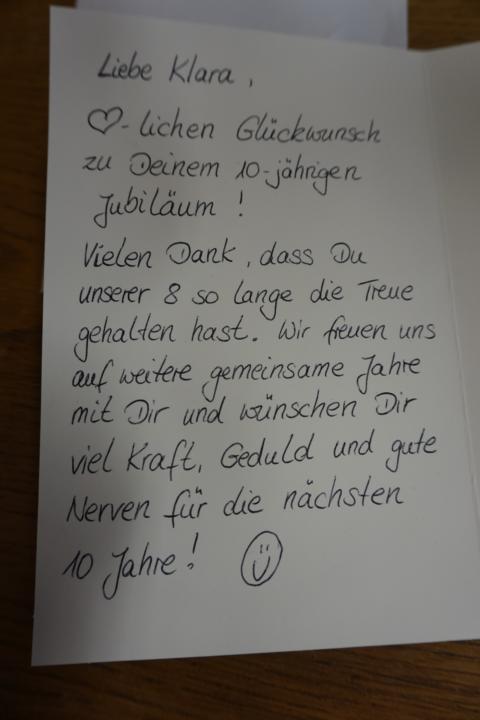 Liebe Klara,
♡-lichen Glückwunsch
zu Deinem 10-jährigen
Jubiläum!
Vielen Dank, dass Du
unserer 8 so lange die Treue
gehalten hast. Wir freuen uns
auf weitere gemeinsame Jahre
mit Dir und wünschen Dir
viel Kraft, Geduld und gute
Nerven für die nächsten
10 Jahre! ☺